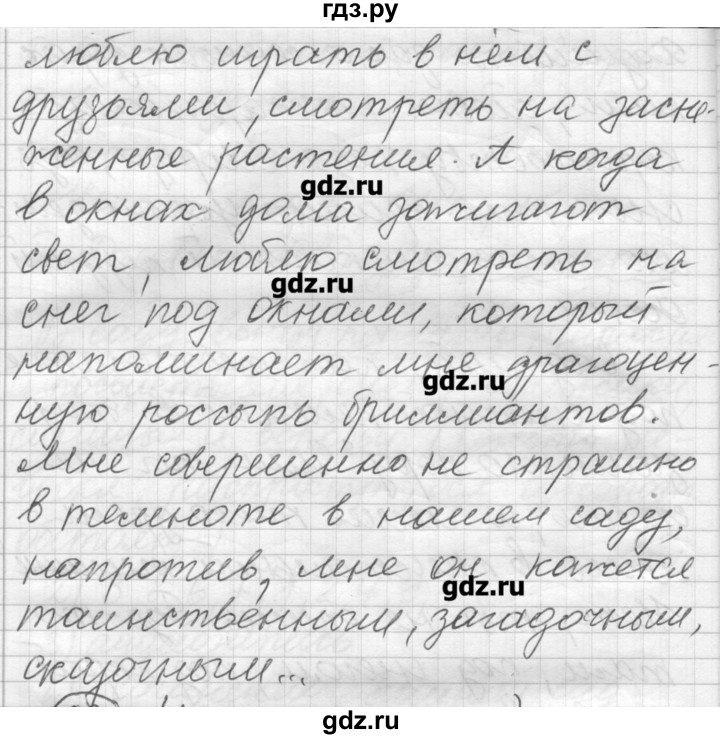 гдз.ру
люблю играть в нём с
друзьями, смотреть на засне-
женные растения. А когда
gdz.ru
в окнах дома зажигают
свет, люблю смотреть на
gdz.ru
снег под окнами, который
напоминает мне драгоцен-
gdz.ru
ную россыпь бриллиантов.
Мне совершенно не страшно
в темноте в нашем саду,
напротив, мне он кажется
gdz.ru
таинственным, загадочным,
сказочным...
gdz.ru